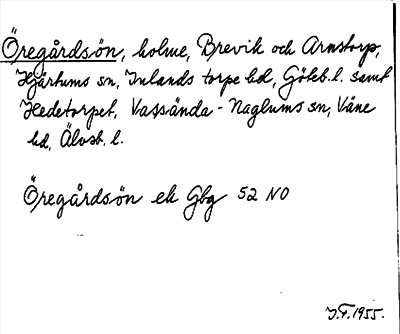 Öregårdsön, holme, Brevik och Arnstorp,
Hjärtums sn, Inlands torpe hd, Göteb. l. samt
Hedetorpet, Vassända-Naglums sn, Väne
hd, Älvsb. l.
Öregårdsön ek Gbg 52 NO
J.F. 1955.